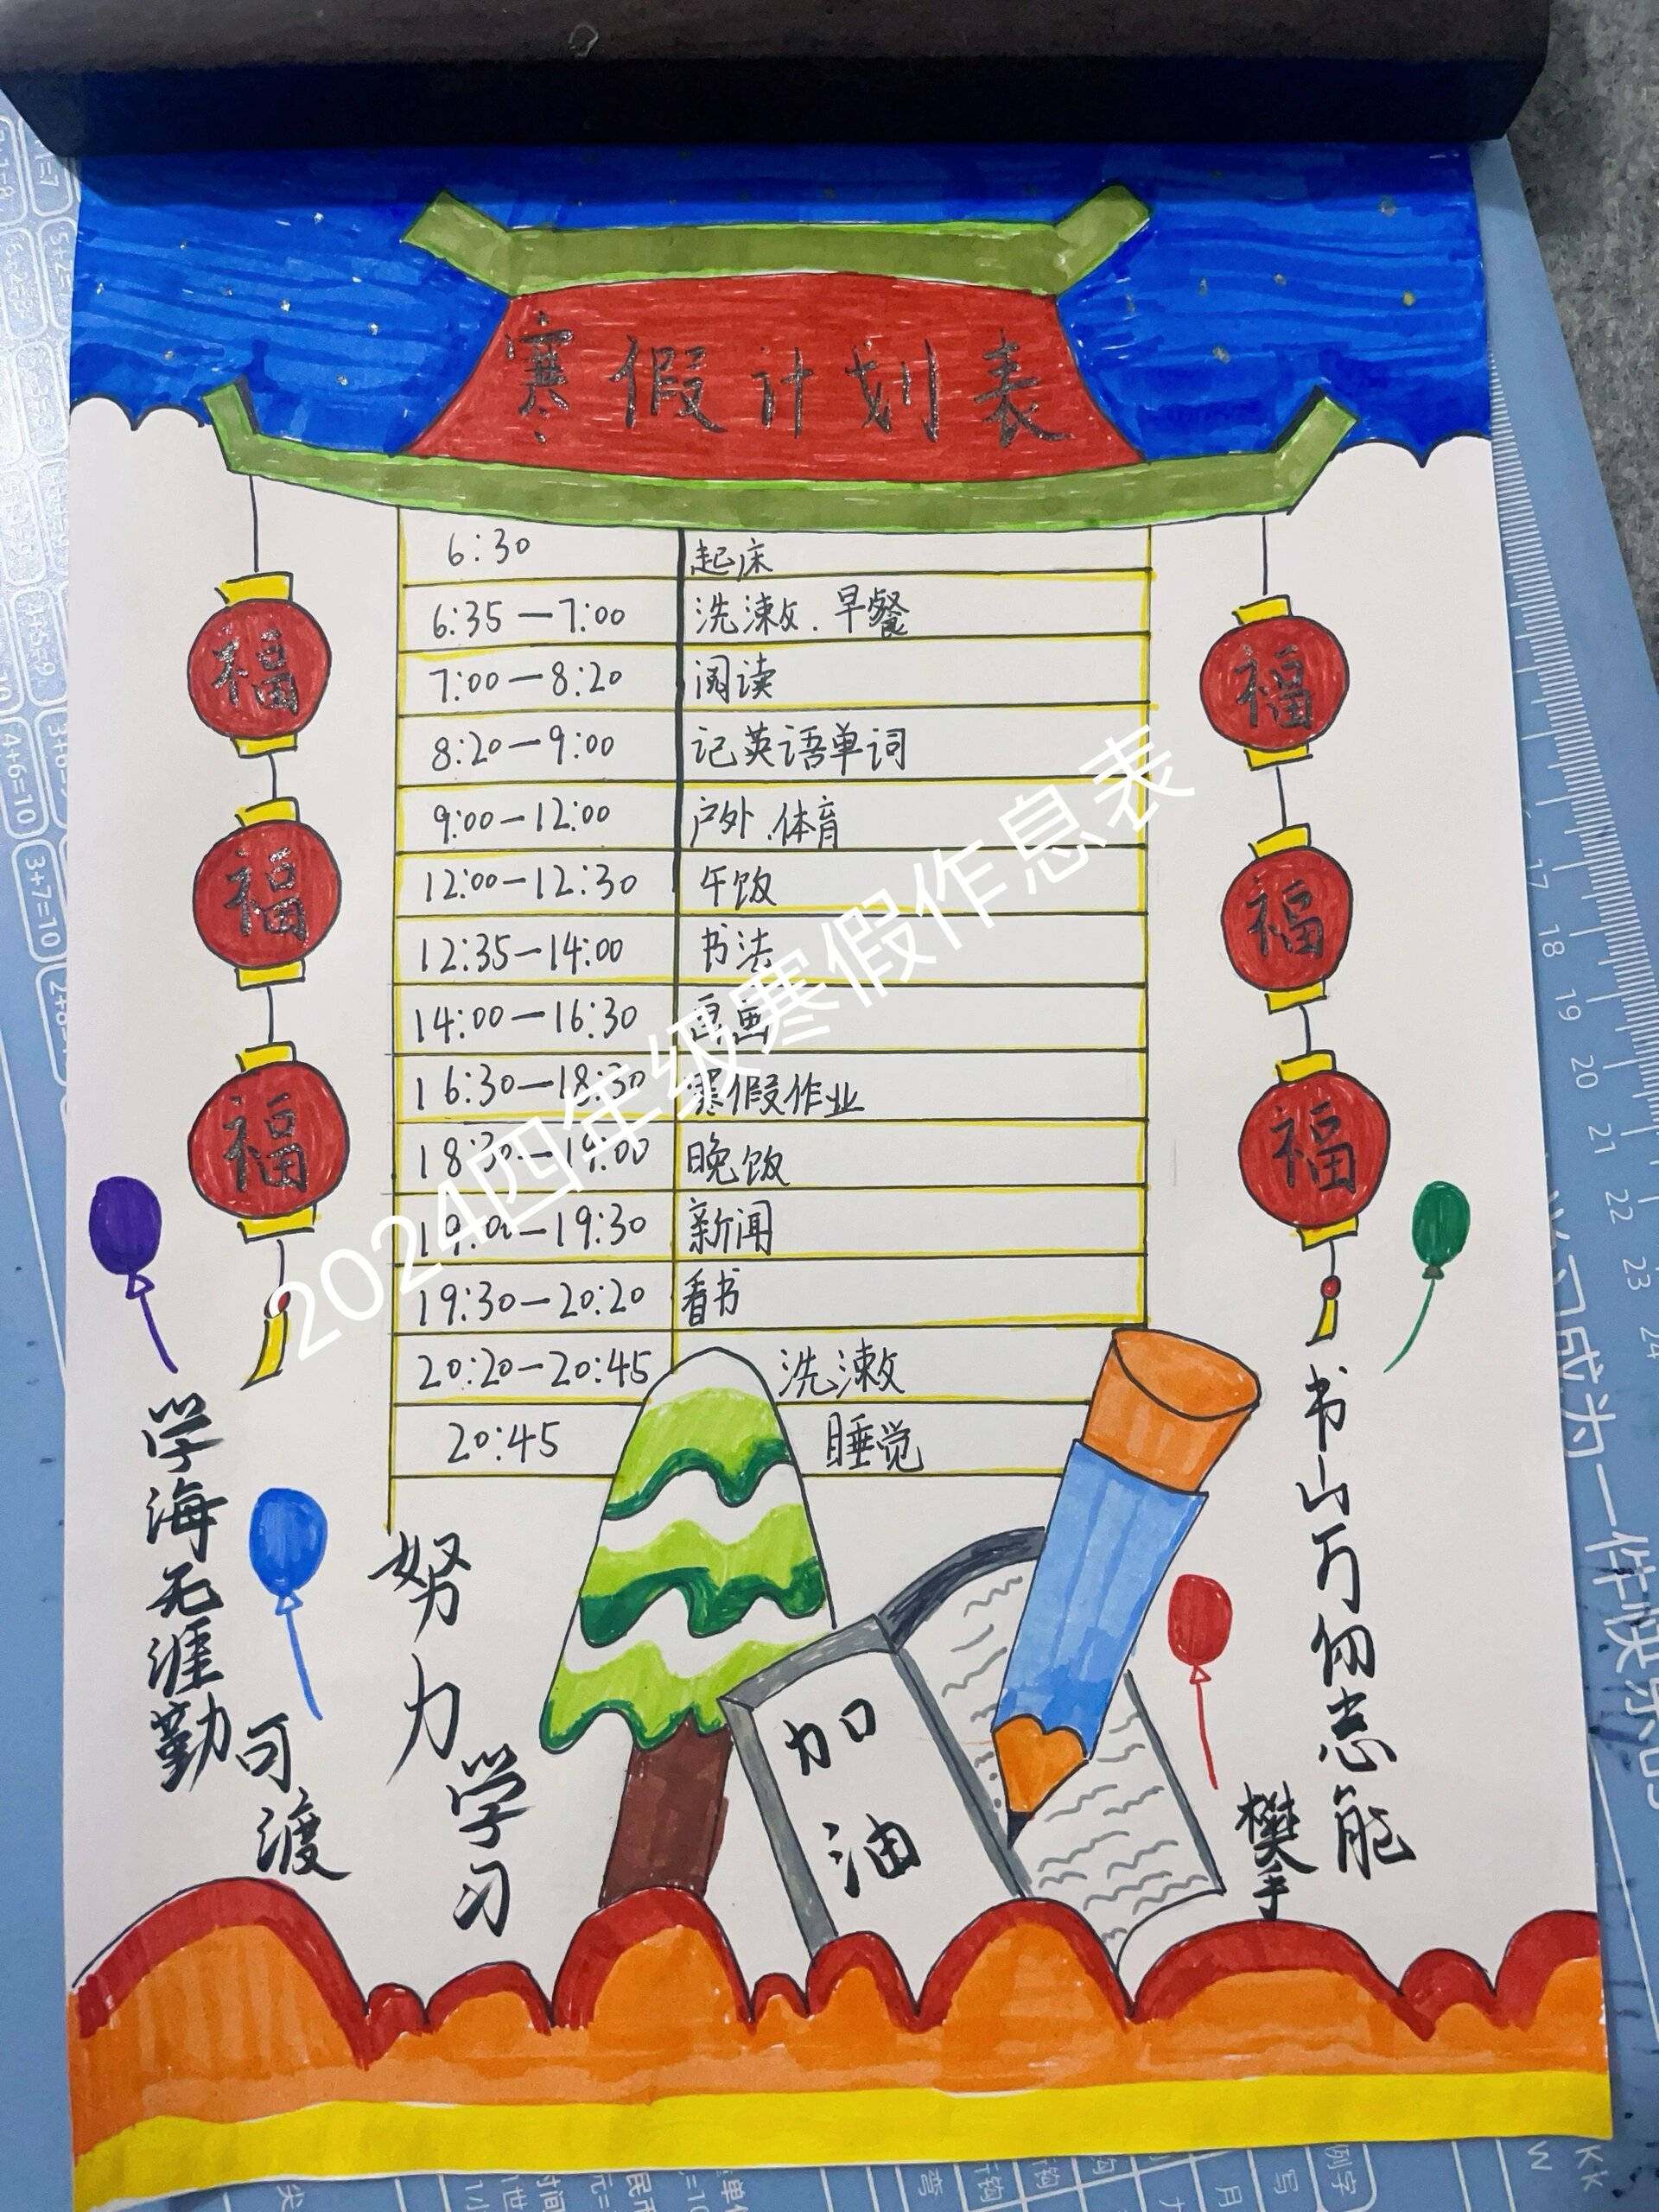 寒假计划表
6:30 起床
6:35—7:00 洗漱.早餐
7:00—8:20 阅读
8:20—9:00 记英语单词
9:00—12:00 户外.体育
12:00—12:30 午饭
12:35—14:00 书法
14:00—16:30 画
16:30—18:30 寒假作业
18:30—19:00 晚饭
19:00—19:30 新闻
19:30—20:20 看书
20:20—20:45 洗漱
20:45 睡觉
福
福
福
福
福
福
学海无涯勤可渡
书山万仞志能攀
努力学习
加油
2024四年级寒假作息表
3+7=10
4+6=10
17
18
19
20
21
22
23
24